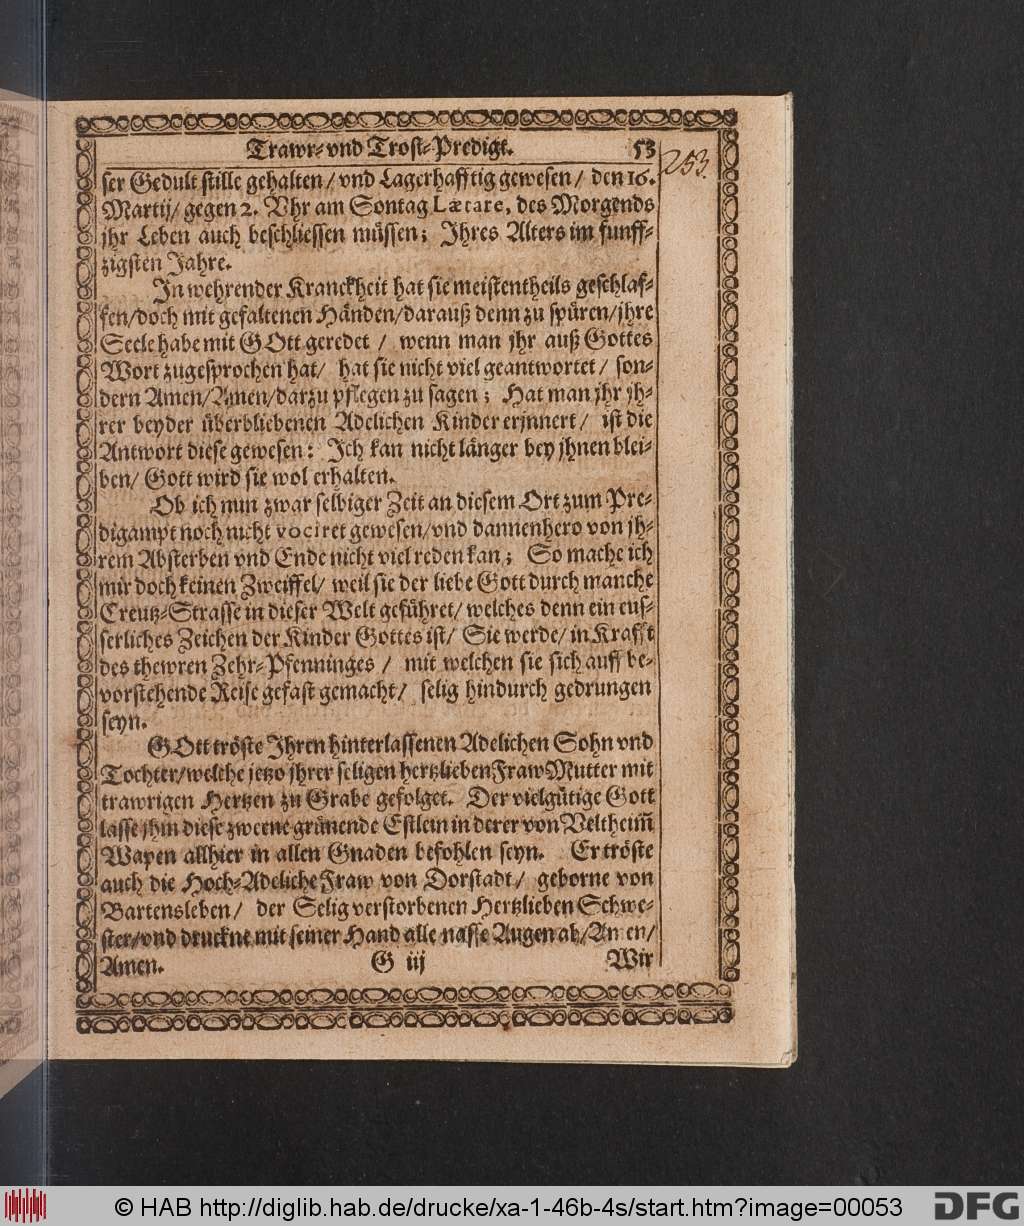 Trawr- vnd Trost-Predigt. 53
253.
ser Gedult stille gehalten / vnd Lagerhafftig gewesen / den 16.
Martij / gegen 2. Vhr am Sontag Lætare, des Morgends
jhr Leben auch beschliessen müssen; Ihres Alters im funff-
zigsten Jahre.
In wehrender Kranckheit hat sie meistentheils geschlaf-
fen / doch mit gefaltenen Händen / darauß denn zu spüren / jhre
Seele habe mit GOtt geredet / wenn man jhr auß Gottes
Wort zugesprochen hat / hat sie nicht viel geantwortet / son-
dern Amen / Amen / darzu pflegen zu sagen; Hat man jhr jh-
rer beyder überbliebenen Adelichen Kinder erjnnert / ist die
Antwort diese gewesen: Ich kan nicht länger bey jhnen blei-
ben / Gott wird sie wol erhalten.
Ob ich nun zwar selbiger Zeit an diesem Ort zum Pre-
digampt noch nicht vociret gewesen / vnd dannenhero von jh-
rem Absterben vnd Ende nicht viel reden kan; So mache ich
mir doch keinen Zweiffel / weil sie der liebe Gott durch manche
Creutz-Strasse in dieser Welt geführet / welches denn ein eus-
serliches Zeichen der Kinder Gottes ist / Sie werde / in Krafft
des thewren Zehr-Pfenninges / mit welchen sie sich auff be-
vorstehende Reise gefast gemacht / selig hindurch gedrungen
seyn.
GOtt tröste Ihren hinterlassenen Adelichen Sohn vnd
Tochter / welche jetzo jhrer seligen hertzlieben Fraw Mutter mit
trawrigen Hertzen zu Grabe gefolget. Der vielgütige Gott
lasse jhm diese zweene grünende Estlein in derer von Veltheim̃
Wapen allhier in allen Gnaden befohlen seyn. Er tröste
auch die Hoch-Adeliche Fraw von Dorstadt / geborne von
Bartensleben / der Selig verstorbenen Hertzlieben Schwe-
ster / vnd druckne mit seiner Hand alle nasse Augen ab / Amen /
Amen. G iij Wir
© HAB http://diglib.hab.de/drucke/xa-1-46b-4s/start.htm?image=00053 DFG